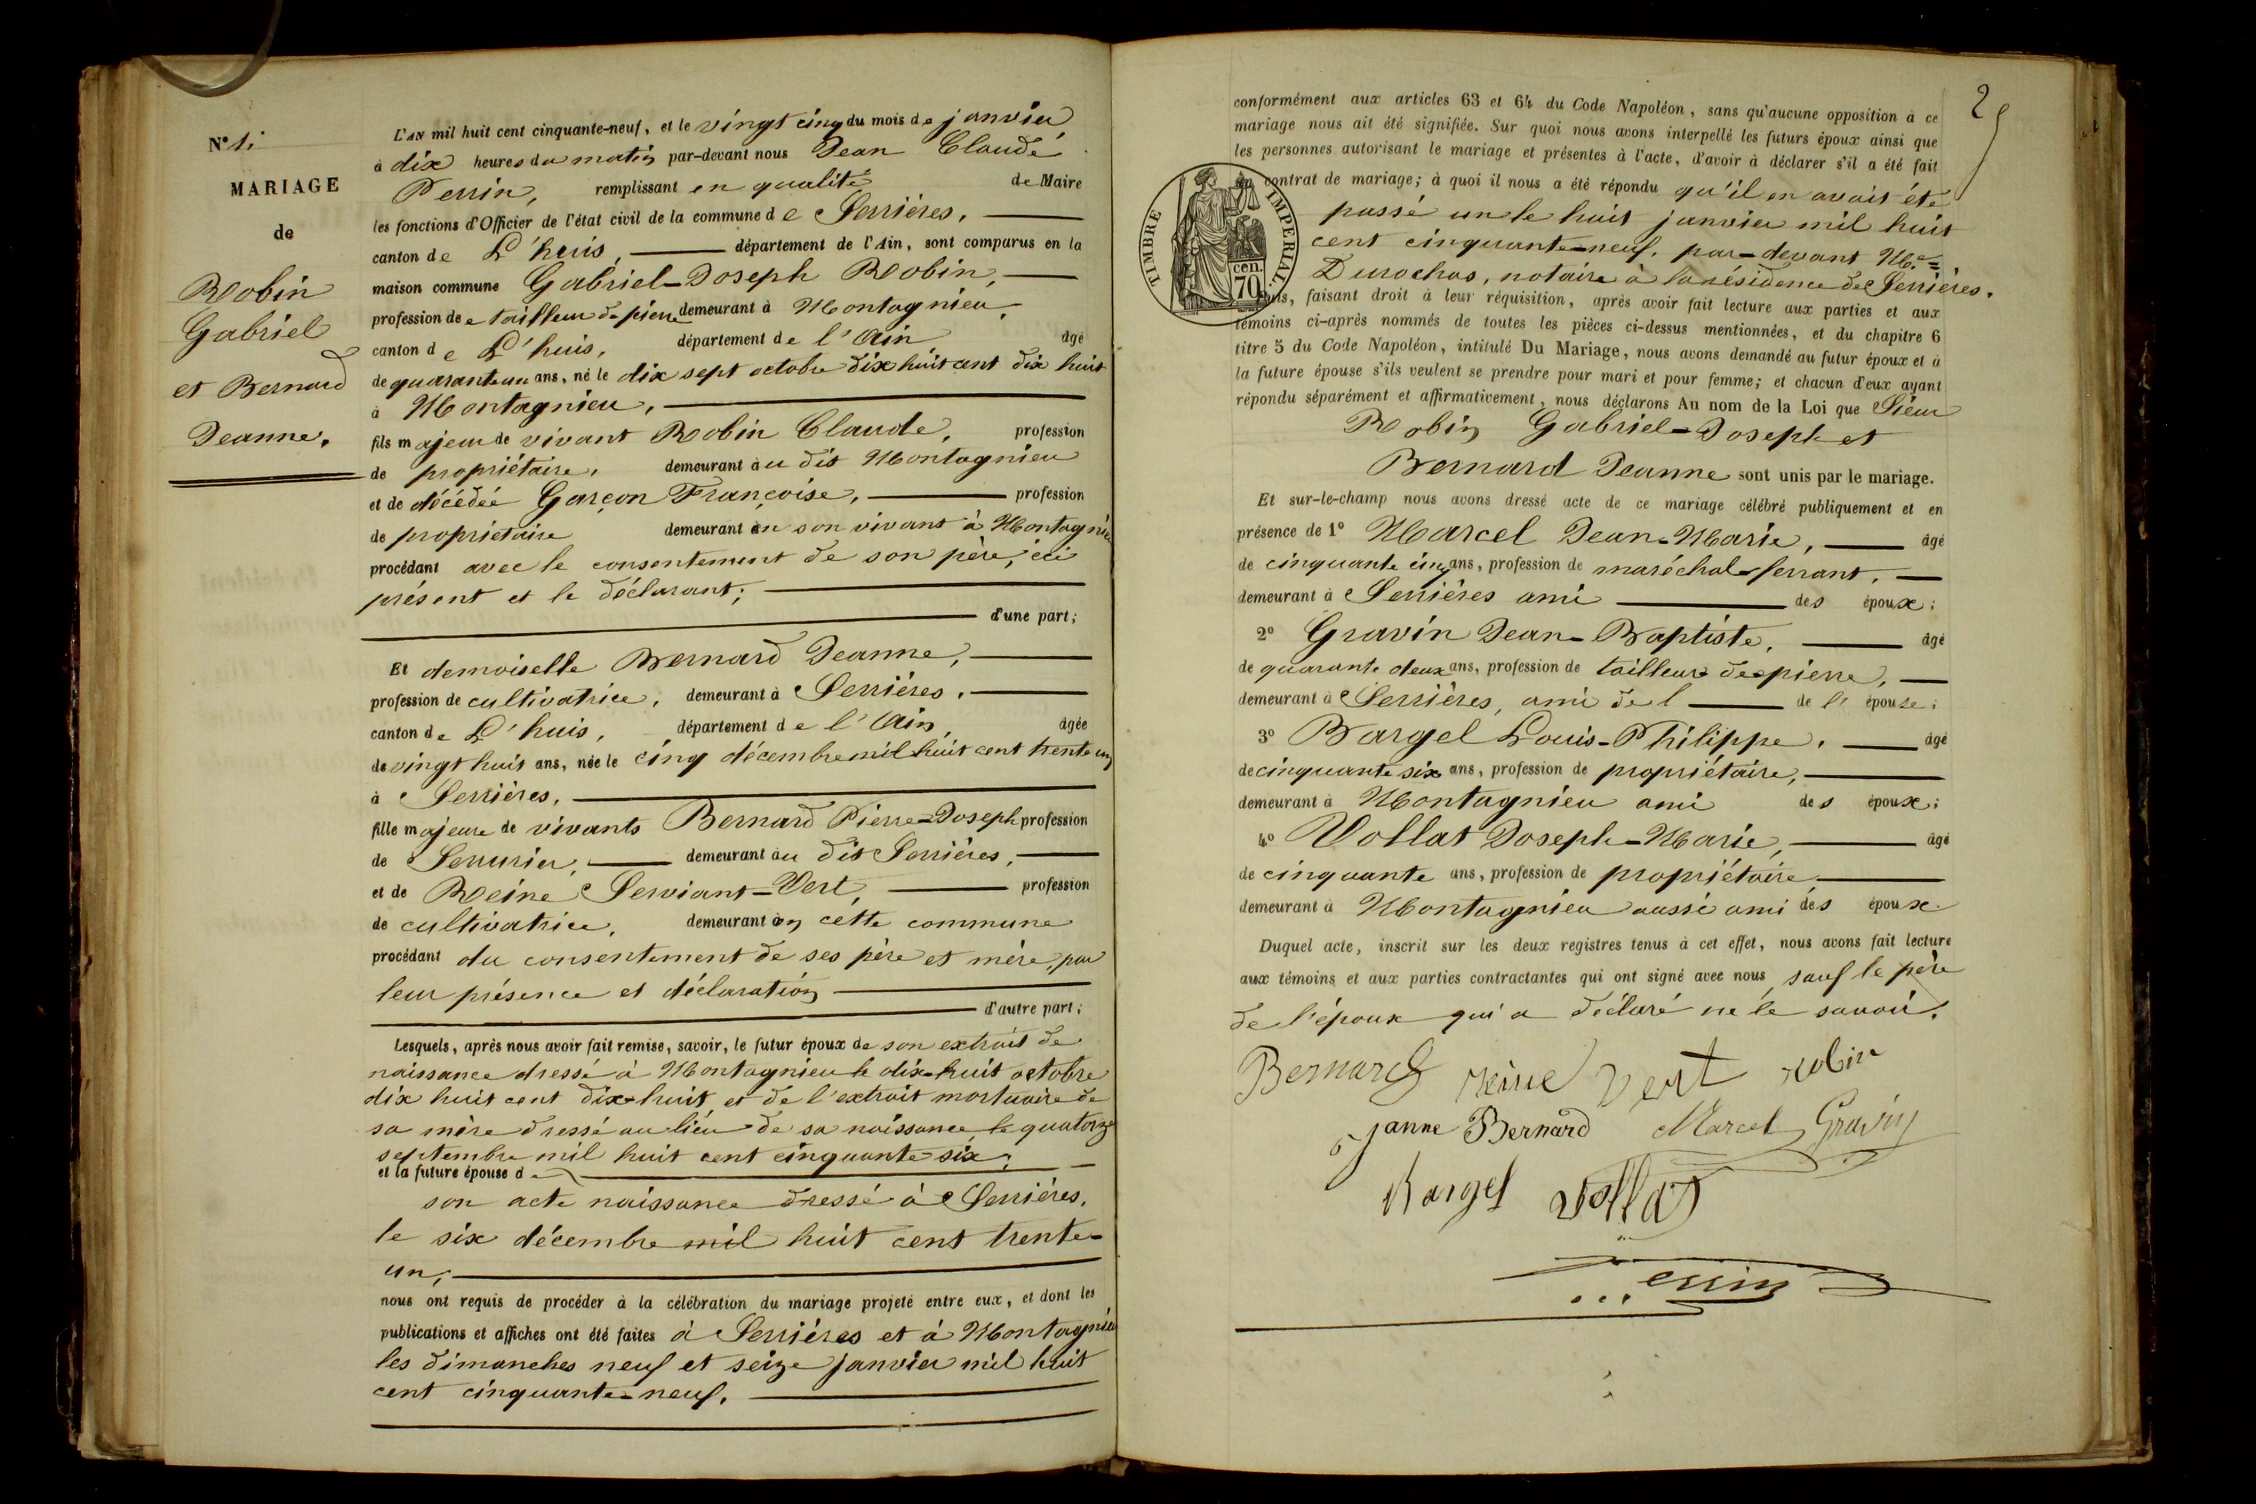 N° 1.
MARIAGE
de
Robin
Gabriel
et Bernard
Jeanne.
L'AN mil huit cent cinquante-neuf, et le vingt cinq du mois de janvier
à dix heures du matin par-devant nous Jean Claude
Perrin, remplissant en qualité de Maire
les fonctions d'Officier de l'état civil de la commune de Serrières,
canton de L'huis, département de l'Ain, sont comparus en la
maison commune Gabriel-Joseph Robin,
profession de tailleur de pierre demeurant à Montagnieu,
canton de L'huis, département de l'Ain âgé
de quarante un ans, né le dix sept octobre dix huit cent dix huit
à Montagnieu,
fils majeur de vivant Robin Claude, profession
de propriétaire, demeurant au dit Montagnieu
et de décédée Garçon Françoise, profession
de propriétaire demeurant en son vivant à Montagnieu
procédant avec le consentement de son père, ici
présent et le déclarant;
d'une part;
Et demoiselle Bernard Jeanne,
profession de cultivatrice, demeurant à Serrières,
canton de L'huis, département de l'Ain, âgée
de vingt huit ans, née le cinq décembre mil huit cent trente un
à Serrières,
fille majeure de vivants Bernard Pierre-Joseph profession
de Serrurier, demeurant au dit Serrières,
et de Reine Serviant-Vert, profession
de cultivatrice, demeurant en cette commune
procédant du consentement de ses père et mère, par
leur présence et déclaration
d'autre part;
Lesquels, après nous avoir fait remise, savoir, le futur époux de son extrait de
naissance dressé à Montagnieu le dix-huit octobre
dix huit cent dix-huit et de l'extrait mortuaire de
sa mère dressé au lieu de sa naissance le quatorze
septembre mil huit cent cinquante six;
et la future épouse de
son acte naissance dressé à Serrières,
le six décembre mil huit cent trente-
un;
nous ont requis de procéder à la célébration du mariage projeté entre eux, et dont les
publications et affiches ont été faites à Serrières et à Montagnieu
les dimanches neuf et seize janvier mil huit
cent cinquante-neuf.
2
conformément aux articles 63 et 64 du Code Napoléon, sans qu'aucune opposition à ce
mariage nous ait été signifiée. Sur quoi nous avons interpellé les futurs époux ainsi que
les personnes autorisant le mariage et présentes à l'acte, d'avoir à déclarer s'il a été fait
un contrat de mariage; à quoi il nous a été répondu qu'il en avait été
passé un le huit janvier mil huit
cent cinquante-neuf, par-devant Me
Durochas, notaire à la résidence de Serrières.
TIMBRE IMPERIAL.
cen.
70
Nous, faisant droit à leur réquisition, après avoir fait lecture aux parties et aux
témoins ci-après nommés de toutes les pièces ci-dessus mentionnées, et du chapitre 6
titre 5 du Code Napoléon, intitulé Du Mariage, nous avons demandé au futur époux et à
la future épouse s'ils veulent se prendre pour mari et pour femme; et chacun d'eux ayant
répondu séparément et affirmativement, nous déclarons Au nom de la Loi que Sieur
Robin Gabriel-Joseph et
Bernard Jeanne sont unis par le mariage.
Et sur-le-champ nous avons dressé acte de ce mariage célébré publiquement et en
présence de 1° Marcel Jean-Marie, âgé
de cinquante cinq ans, profession de maréchal-ferrant,
demeurant à Serrières ami des époux;
2° Gravin Jean-Baptiste, âgé
de quarante deux ans, profession de tailleur de pierre,
demeurant à Serrières, ami de l de l' épouse;
3° Bargel Louis-Philippe, âgé
de cinquante six ans, profession de propriétaire,
demeurant à Montagnieu ami des époux;
4° Vollat Joseph-Marie, âgé
de cinquante ans, profession de propriétaire
demeurant à Montagnieu aussi ami des époux
Duquel acte, inscrit sur les deux registres tenus à cet effet, nous avons fait lecture
aux témoins et aux parties contractantes qui ont signé avec nous, sauf le père
de l'époux qui a déclaré ne le savoir.
Bernard reine Vert robin
janne Bernard Marcel Gravin
Bargel Vollat
Perrin